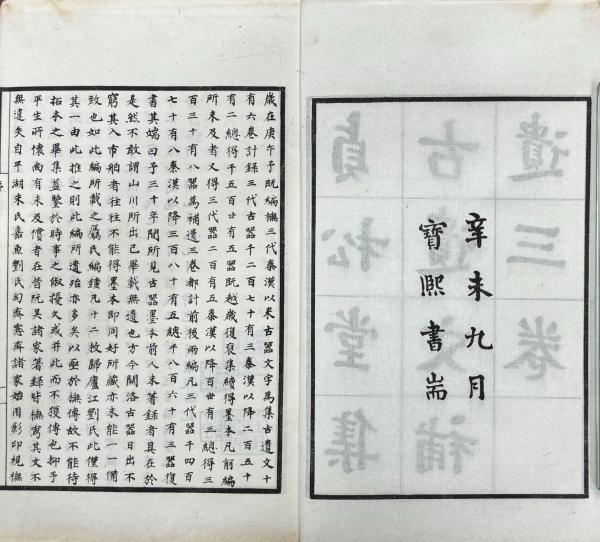 辛未九月
寶熙書耑
貞松堂集
古遺文補
遺三卷
歲在庚午予既編撫三代秦漢以來古器文字為集古遺文十
有六卷計錄三代古器千二百七十有三秦漢以降二百五十
有二總得千五百廿有五器既越歲復裒集續得墨本凡前編
所未及者又得三代器二百有五秦漢以降百卅有三總得三
百三十有八器為補遺三卷都計前後兩編凡三代器千四百
七十有八秦漢以降三百八十有五總千八百六十有三器復
書其耑曰予三十年間所見古器墨本前人未著錄者具在於
是然不敢謂山川所出已畢載無遺也方今關洛古器日出不
窮其入市舶者往往不能得墨本即同好所藏亦未能一一備
致也如此編所載之屬氏編鐘凡十二枚歸廬江劉氏此僅得
其一由此推之則此編所遺殆亦多矣以亟於撫傳故不能待
拓本之畢集蓋鑒於時事之俶擾久或并此而不獲傳也抑予
平生所懷尚有未及償者在昔阮吳諸家著錄皆撫寫其文不
無遺失自平湖朱氏嘉魚劉氏匋齋愙齋諸家始用影印視撫